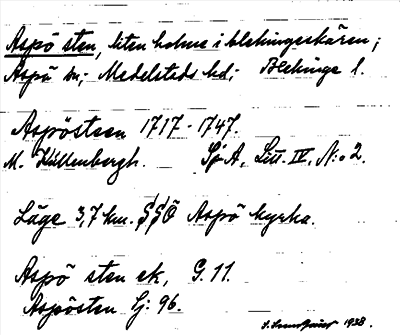 Aspö sten, liten holme i blekingeskären;
Aspö sn; Medelstads hd; Blekinge l.
Aspösteen 1717-1747.
M. Källenbergh. Sj A, Litt. IV, N:o 2.
Läge 3,7 km. SSÖ Aspö kyrka.
Aspö sten ek, G. 11.
Aspösten Sj: 96.
1938.